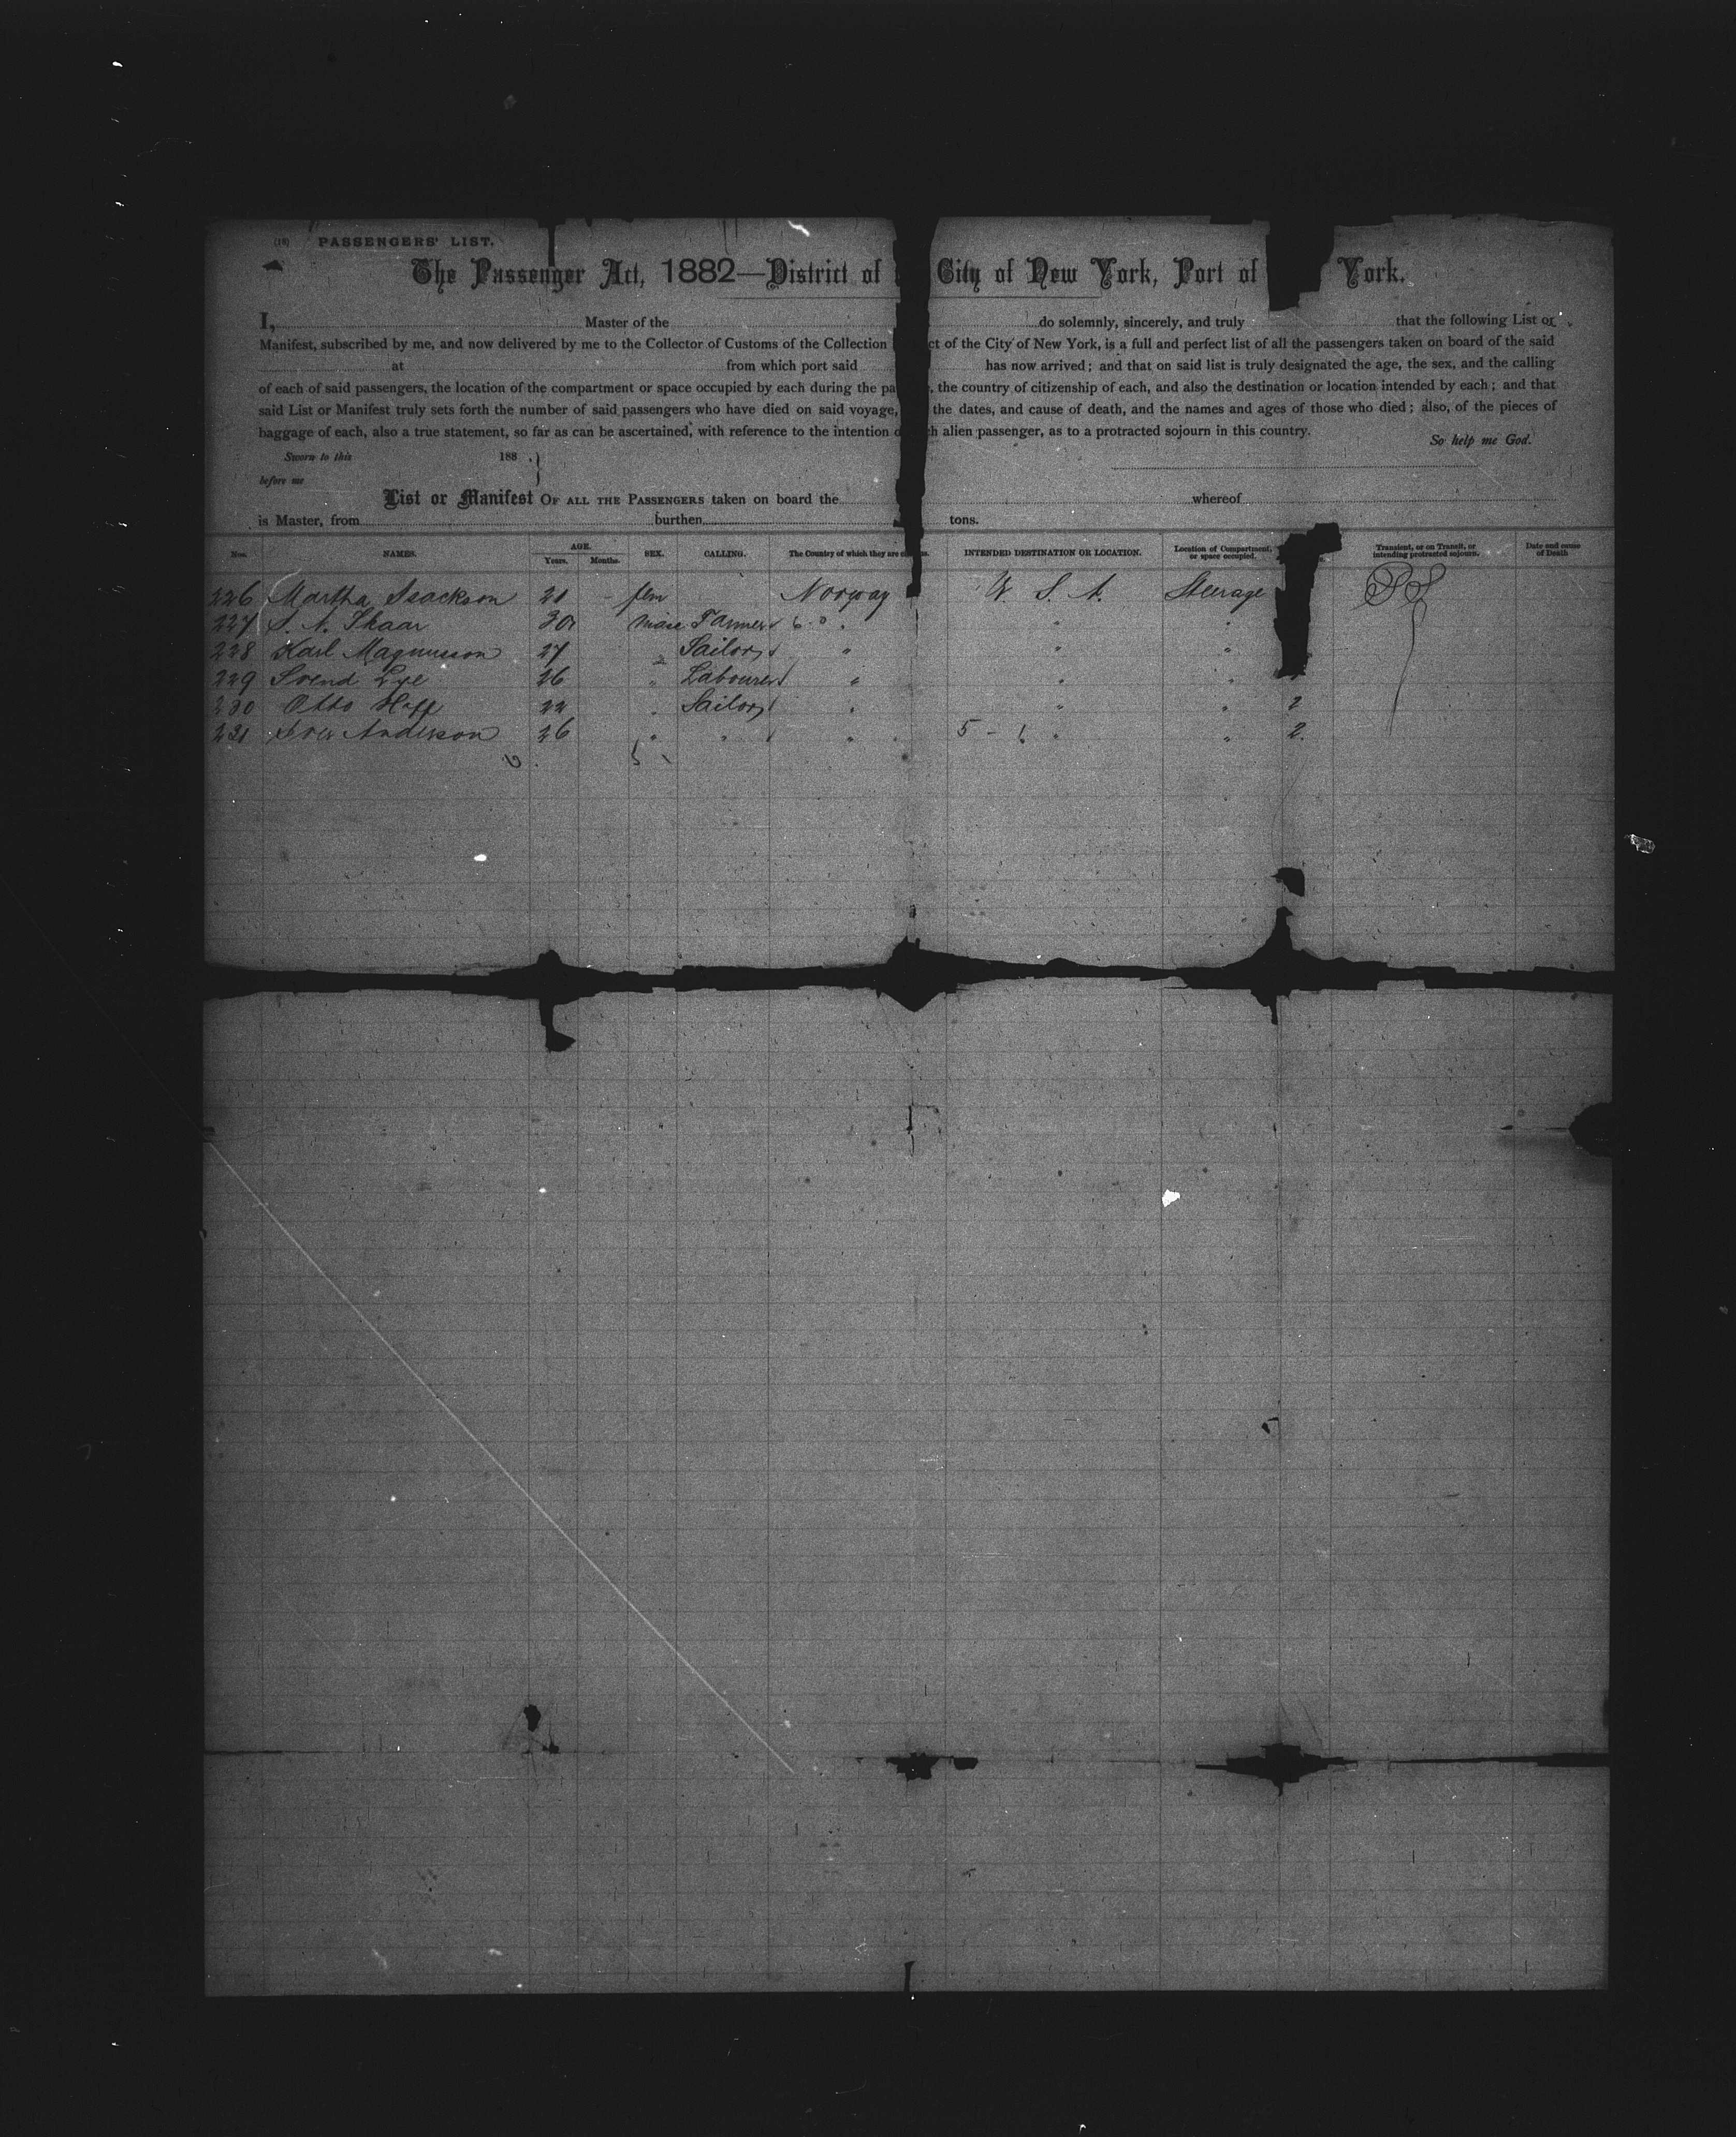 (18) PASSENGERS' LIST.
The Passenger Act, 1882—District of City of New York, Port of York.
I, Master of the do solemnly, sincerely, and truly that the following List or
Manifest, subscribed by me, and now delivered by me to the Collector of Customs of the Collection ct of the City of New York, is a full and perfect list of all the passengers taken on board of the said
at from which port said has now arrived; and that on said list is truly designated the age, the sex, and the calling
of each of said passengers, the location of the compartment or space occupied by each during the pa , the country of citizenship of each, and also the destination or location intended by each; and that
said List or Manifest truly sets forth the number of said passengers who have died on said voyage, the dates, and cause of death, and the names and ages of those who died; also, of the pieces of
baggage of each, also a true statement, so far as can be ascertained, with reference to the intention o h alien passenger, as to a protracted sojourn in this country.
So help me God.
Sworn to this 188 .
before me
List or Manifest OF ALL THE PASSENGERS taken on board the whereof
is Master, from burthen tons.
Nos. NAMES. AGE. Years. Months. SEX. CALLING. The Country of which they are c s. INTENDED DESTINATION OR LOCATION. Location of Compartment, or space occupied. Transient, or on Transit, or intending protracted sojourn. Date and cause of Death
226 Martha Isackson 21 - fem Norway U. S. A. Steerage PS
227 S. N. Skaar 30 male Farmer " " "
228 Karl Magnusson 27 " Sailor " " "
229 Svend Lye 26 " Labourer " " "
230 Otto 22 " Sailor " " " 2
231 Iver Anderson 26 " " " 5 - 1 " " 2